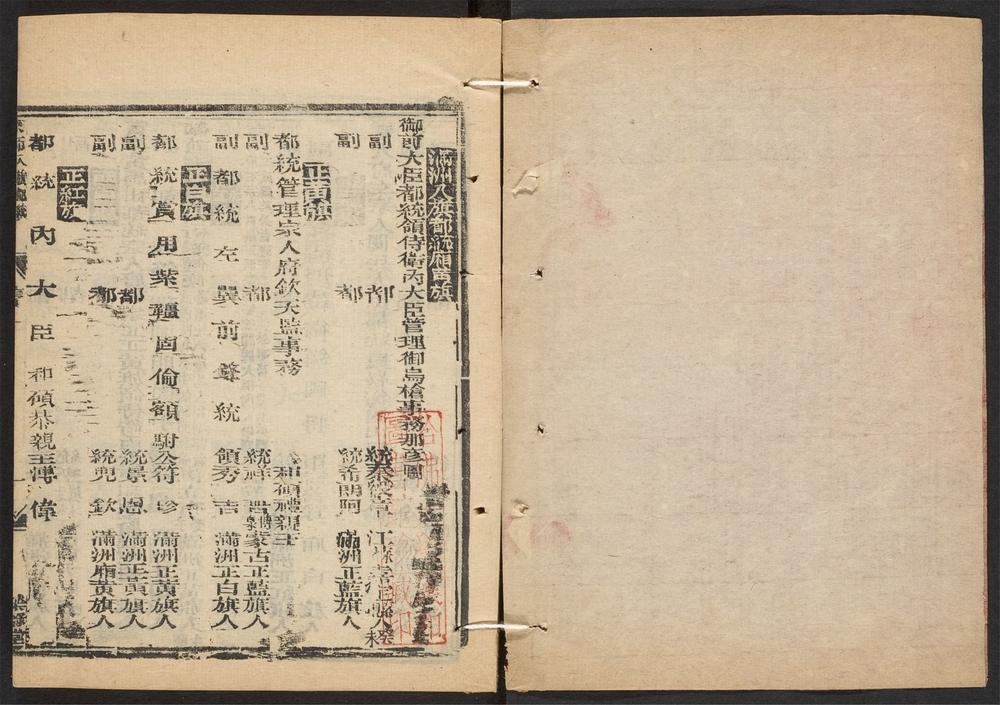 滿洲八旗都統廂黃旗
御前大臣都統領侍衛內大臣管理御鳥槍事務那彥圖
副都統秦綬章 江蘇嘉定縣人 癸未
副都統希朗阿 滿洲正藍旗人
正黃旗
都統管理宗人府欽天監事務 和碩禮親王
副都統祥 蒙古正藍旗人
副都統左翼前鋒統領秀吉 滿洲正白旗人
正白旗
都統賞用紫韁固倫額駙公符珍 滿洲正黃旗人
副都統景恩 滿洲正黃旗人
副都統兜欽 滿洲廂黃旗人
正紅旗
都統內大臣和碩恭親王溥偉